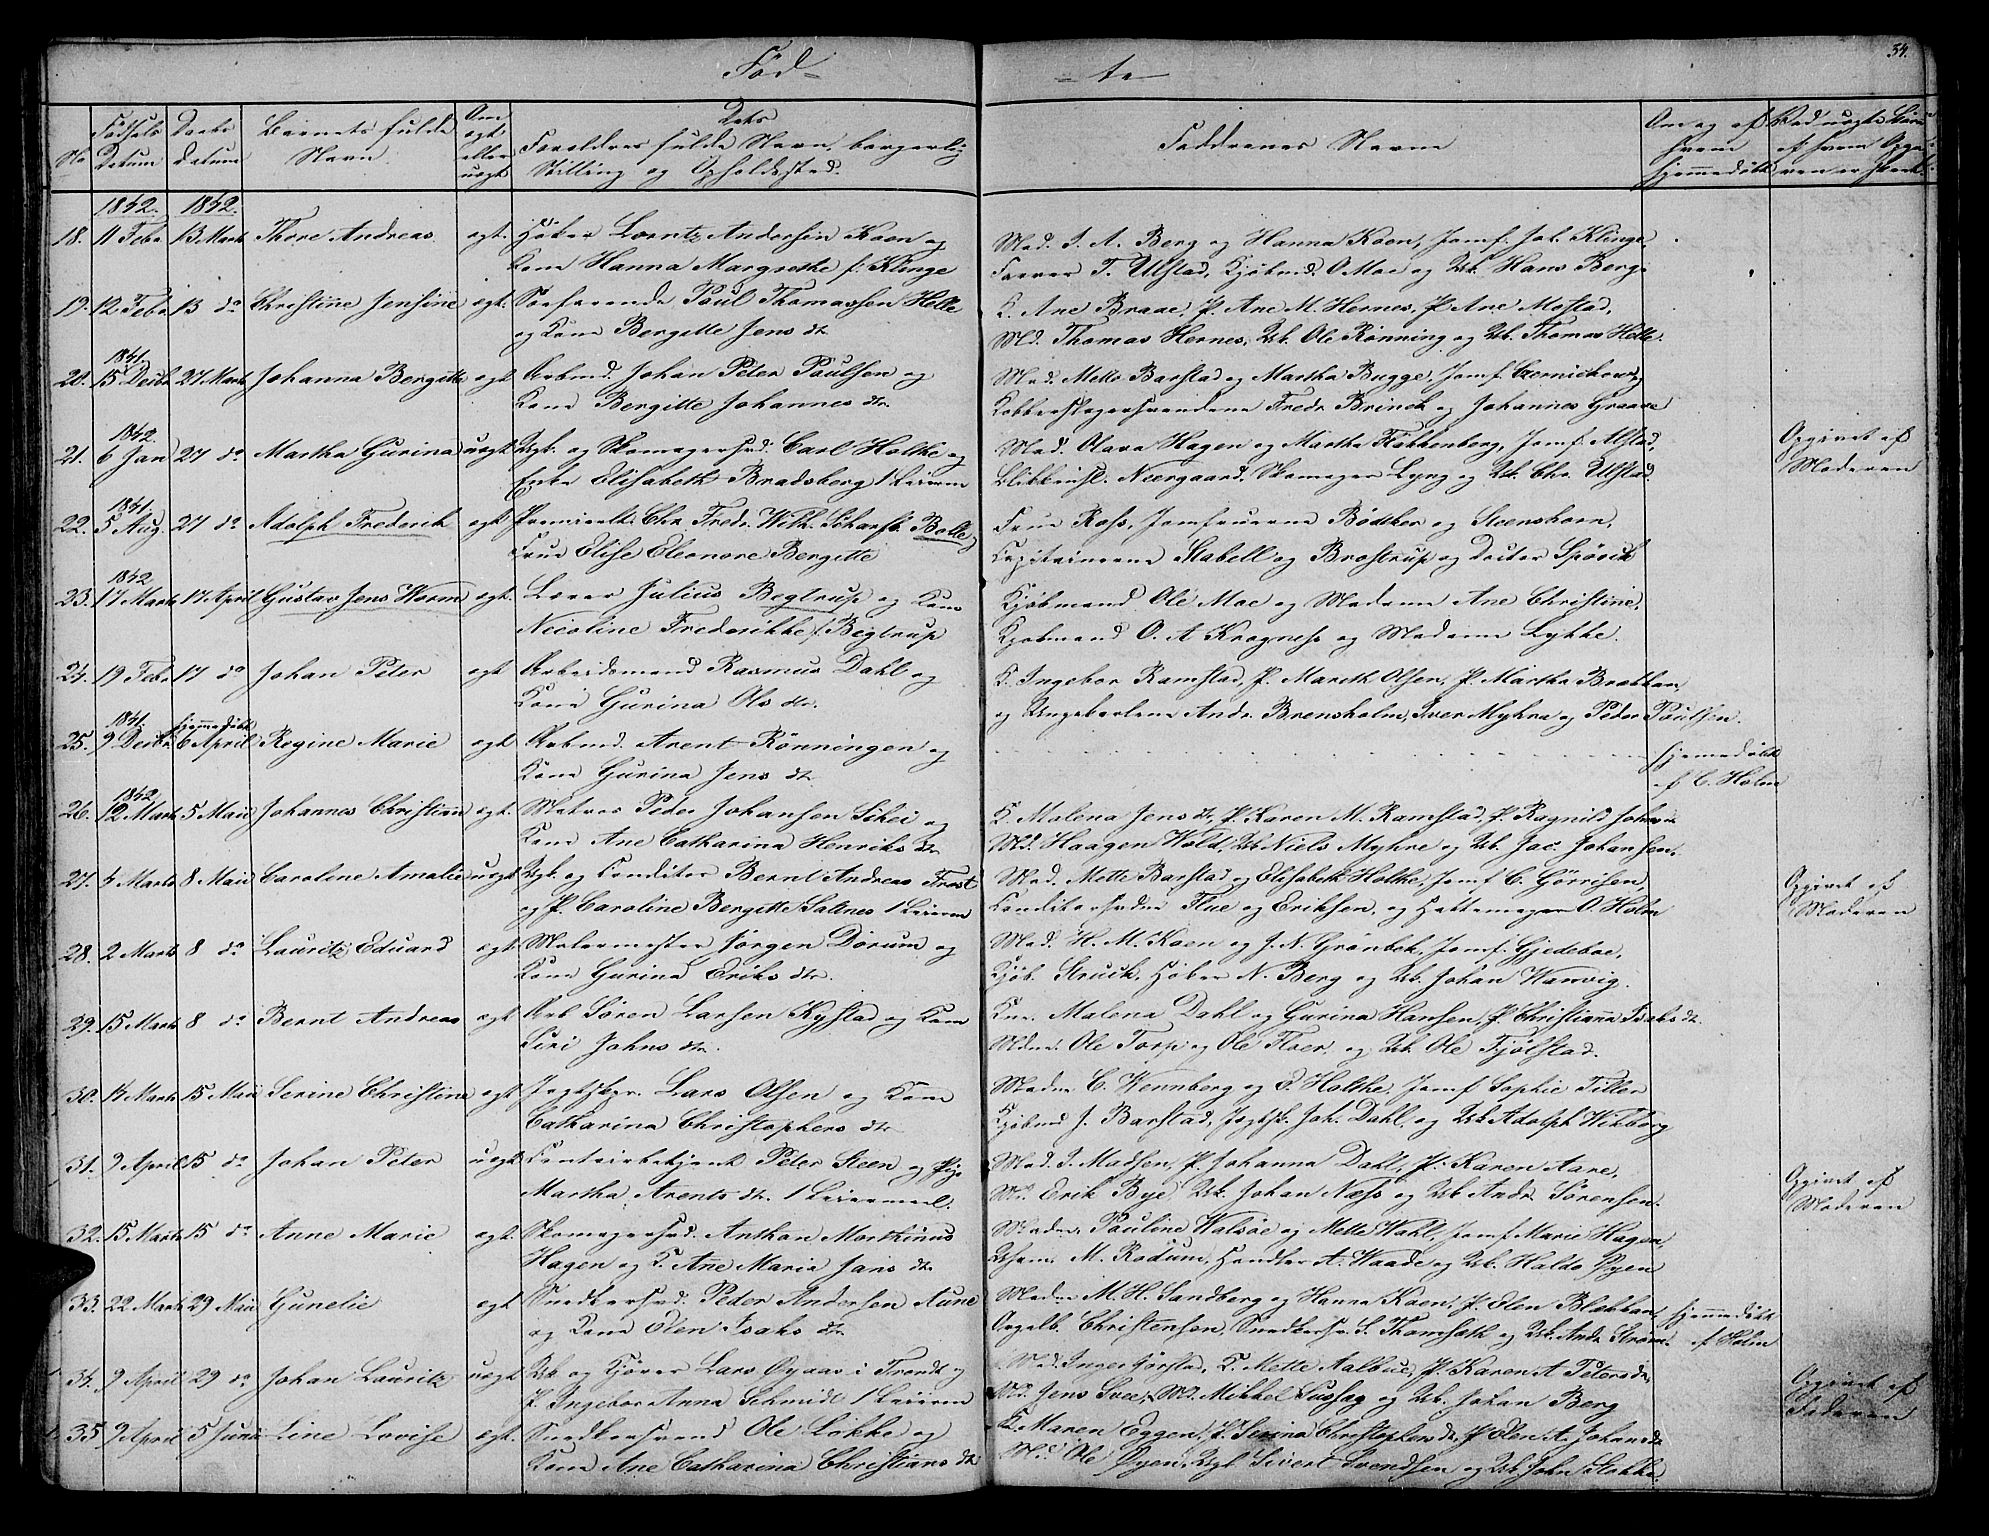 34.
Fød- -te
No
Fødsels Datum
Daabs Datum
Barnets fulde Navn.
Om ægt eller uægt
Dets Forældres fulde Navn, borgerlig Stilling og Opholdssted.
Faddernes Navne
Om og af hvem hjemmedøbt
1842. 1842.
18. 11 Febr 13 Marts Thore Andreas ægt. Høker Lorntz Andersen Koen og
Kone Hanna Margrethe f: Klinge
Mad. J. A. Berg og Hanna Koen, Jomf. Joh. Klinge,
Farver T. Ulstad, Kjøbmd. O Moe og Uk. Hans Berg.
19. 12 Febr 13 do Christine Jensine ægt. Søefarende Paul Thomassen Helle
og Kone Bergitte Jens dtr
K. Ane Braae, P. Ane M. Hernes, P. Ane Mostad,
Md. Thomas Hernes, Uk. Ole Rønning og Uk. Thomas Helle.
1841.
20. 15 Decbr 27 Marts Johanna Bergitte ægt Arbmd. Johan Peter Paulsen og
Kone Bergitte Johannes dtr.
Mad. Mette Barstad og Martha Bugge, Jomf. Czernickow,
Kobberslagersvendene Fredr Brinck og Johannes Graave
1842.
21. 6 Jan 27 do Martha Gurina uægt Ugk. og Skomagersvd. Carl Holthe og
Enke Elisabeth Bradsberg 1 Leierm
Mad. Olava Hagen og Martha Flekkenberg, Jomf. Alstad,
Blikkensl. Neergaard, Skomager Lyng og Uk. Chr. Ulstad.
Opgivet af
Moderen
1841.
22. 5 Aug. 27 do Adolph Frederik ægt Premierlt. Chr. Fredr. Wilh. Scharffenb. Bolle,
Frue Elise Eleonore Bergitte
Frue Ross, Jomfruerne Bødtker og Steenshorn,
Capitainerne Stabell og Brostrup og Doctor Spørck
1842
23. 17 Marts 17 April Gustav Jens Worm ægt. Lærer Julius Begtrup og Kone
Nicoline Frederikke f. Begtrup
Kjøbmand Ole Moe og Madame Ane Christine,
Kjøbmand O. A Krogness og Madame Lykke.
24. 19 Febr 17 do Johan Peter ægt Arbeidsmand Rasmus Dahl og
Kone Gurina Ols dtr.
K. Ingebor Ramstad, P. Mareth Olsen, P. Martha Brækkan,
og Ungekarlene Andr. Brensholm, Iver Myhra og Peder Paulsen.
1841. hjemmedøbt
25. 9 Decbr 6 April Regine Marie ægt Arbmd. Arent Rønningen og
Kone Gurina Jens dtr
hjemmedøbt
af C. Holm
1842.
26. 12 Marts 5 Maii Johannes Christian ægt. Matros Peder Johansen Sikei og
Kone Ane Catharina Henriks dtr
K. Malena Jens dtr, P. Karen M. Ramstad, P. Ragnild Johnsen
Md. Haagen Wold, Uk Niels Myhre og Uk. Jac. Johansen.
27. 4 Marts 8 Maii Caroline Amalie uægt Ugk. og Conditor Bernt Andreas Frost
og P. Caroline Bergitte Saltnes 1 Leierm
Mad. Mette Barstad og Elisabeth Holthe, Jomf C. Gørrisen,
Conditorsvdne Flue og Eriksen, og Hattemager O. Holm
Opgivet af
Moderen
28. 2 Marts 8 do Lauritz Eduard ægt Malermester Jørgen Dorum og
Kone Gurina Eriks dtr.
Mad. H. M. Koen og J. N. Grønbek, Jomf. Gjedeboe,
Kjøb. Struck, Høker N. Berg og Uk. Johan Hanvig.
29. 15 Marts 8 do Bernt Andreas ægt Arb Søren Larsen Kystad og Kone
Siri Johns dtr.
Kne. Malena Dahl og Gurina Hansen, P. Christianna Isaks dtr.
Mdne. Ole Torp og Ole Floer, og Uk. Ole Fjølstad.
30. 14 Marts 15 Maii Serine Christine ægt Jagtskpr. Lars Olsen og Kone
Catharina Christophers dtr
Madm C. Wennberg og E. Holthe, Jomf. Sophie Tiller
Kjøbmd J. Barstad, Jagtsk. Joh. Dahl, og Uk Adolph Wikborg
31. 9 April 15 do Johan Peter uægt Contoirbetjent Peter Steen og Pige
Martha Arents dtr. 1 Leiermaal.
Mad. J. Madsen, P. Johanna Dahl, P. Karen Aare,
Md. Erik Bye, Uk. Johan Næss og Uk Andr. Sørensen.
Opgivet af
Moderen
32. 15 Marts 15 do Anne Marie ægt. Skomagersvd. Anthon Marthinus
Hagen og K. Ane Maria Jans dtr
Madm. Pauline Walsøe og Mette Wahl, Jomf Marie Hagen,
M. Rodum, Handler A. Waade og Uk. Haldo Øyen
33. 22 Marts 29 Maii Gunelie ægt Snedkersvd. Peder Andersen Aune
og Kone Elen Isaks dtr
Madm M. H. Sandberg og Hanna Koen, P. Elen Blækkan,
Orgelb. Christensen, Snedkersv. S. Thomsæth og Uk. Andr Strøm.
hjemmedøbt
af Holm
34. 9 April 29 do Johan Lauritz uægt Uk og Kjører Lars Øyaas i Trondh og
P. Ingebor Anna Schmidt 1 Leierm
Mad. Inger Gjørstad, K. Mette Aalbue, P. Karen A Petersdr,
Md. Jens Svee, Md. Mikkel Susseg og Uk. Johan Berg
Opgivet af
Faderen
35. 9 April 5 Junii Line Lovise ægt. Snedkersvend Ole Løkke og
Kone Ane Catharina Christians dtr
K. Maren Eggen, P. Serina Christophersdr, P. Elen A. Johansdr
Md. Ole Øyen, Ugk Sivert Svendsen og Uk John Flokke.